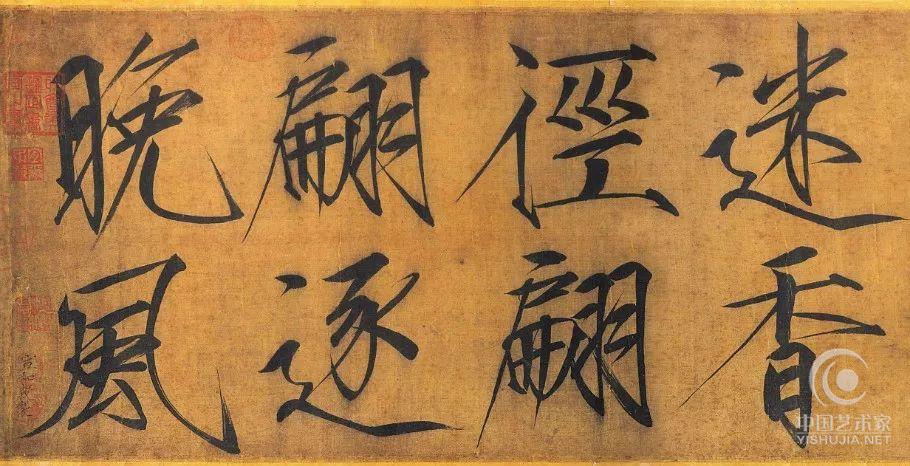 迷香
徑翩
翩逐
晚風
中国艺术家
YISHUJIA.NET